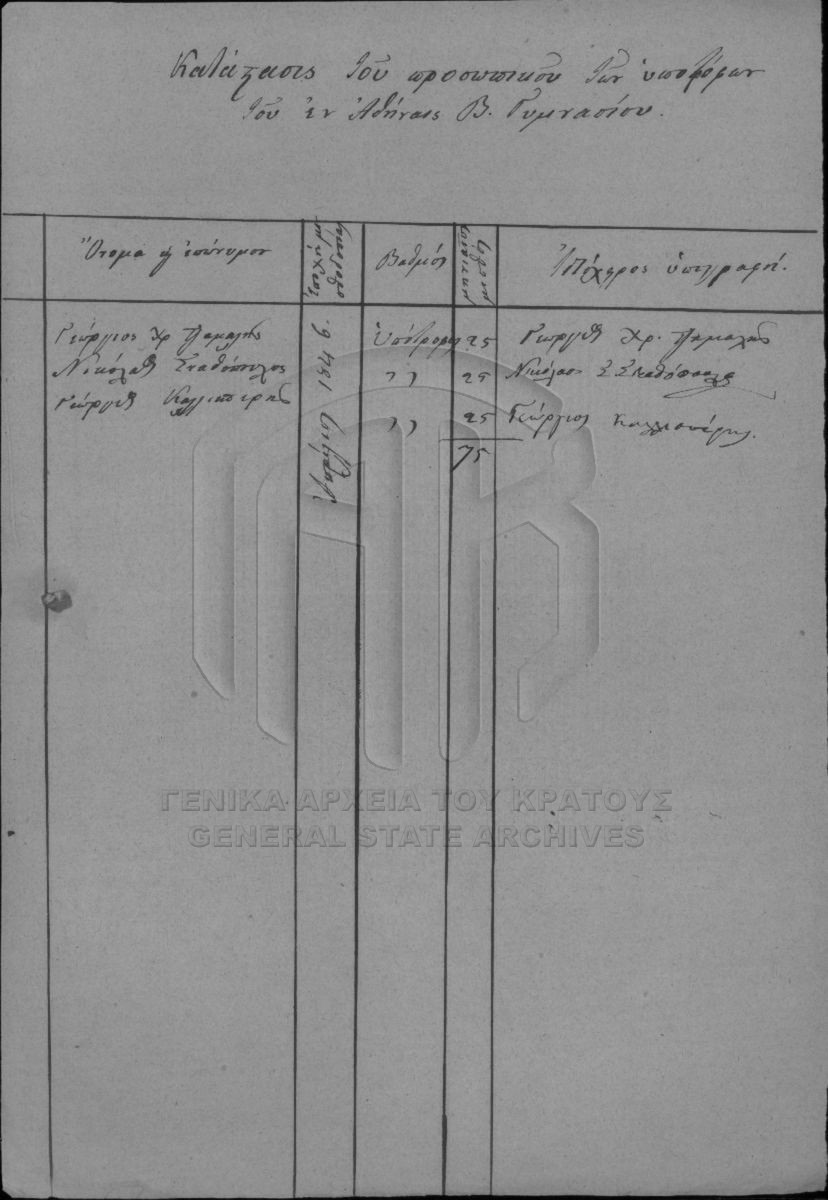 Κατάστασις τοῦ προσωπικοῦ τῶν ὑποτρόφων
τοῦ ἐν Ἀθήναις Β. Γυμνασίου.
Ὄνομα ἢ ἐπώνυμον
Βαθμός
Ἰδιόχειρος ὑπογραφή.
Γεώργιος Χρ
Ὑπότροφος 25
Γεώργιος Χρ.
Νικόλαος Σταθόπουλος
" 25
Νικόλαος Σ Σταθόπουλος
Γεώργιος Καλλισπέρης
" 25
Γεώργιος Καλλισπέρης.
75
ΓΕΝΙΚΑ ΑΡΧΕΙΑ ΤΟΥ ΚΡΑΤΟΥΣ
GENERAL STATE ARCHIVES